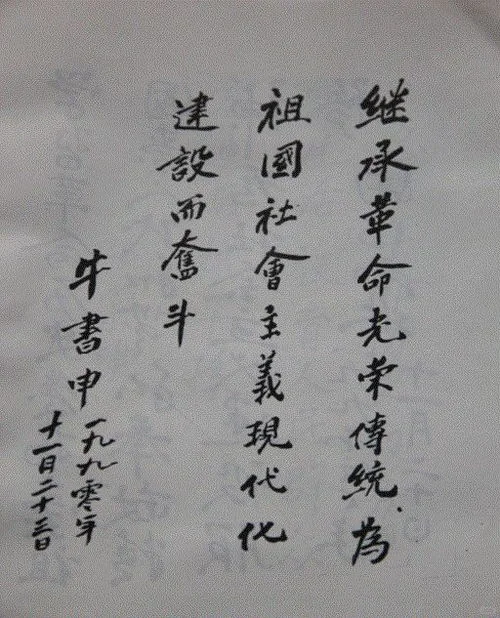 继承革命光荣傳統、為
祖國社會主義現代化
建設而奮斗
牛書申
一九九零年
十一月二十三日